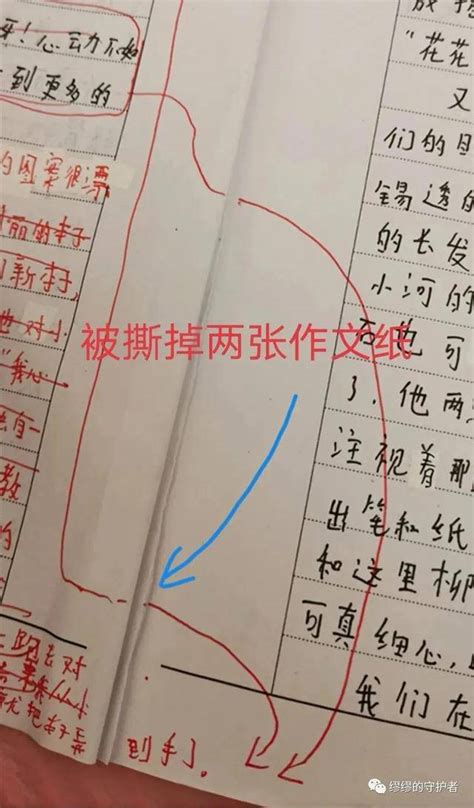 牙！心动力不如
到更多的
的图案很漂
丽的本子
新本子，
他对小
"我心
教
的
跑去对
到手了。
被撕掉两张作文纸
"花花
又
们的目
锡透的
的长发
小河的
后也可
了，他两
注视着那
出笔和纸
和这里柳
可真细心，
我们在
缪缪的守护者